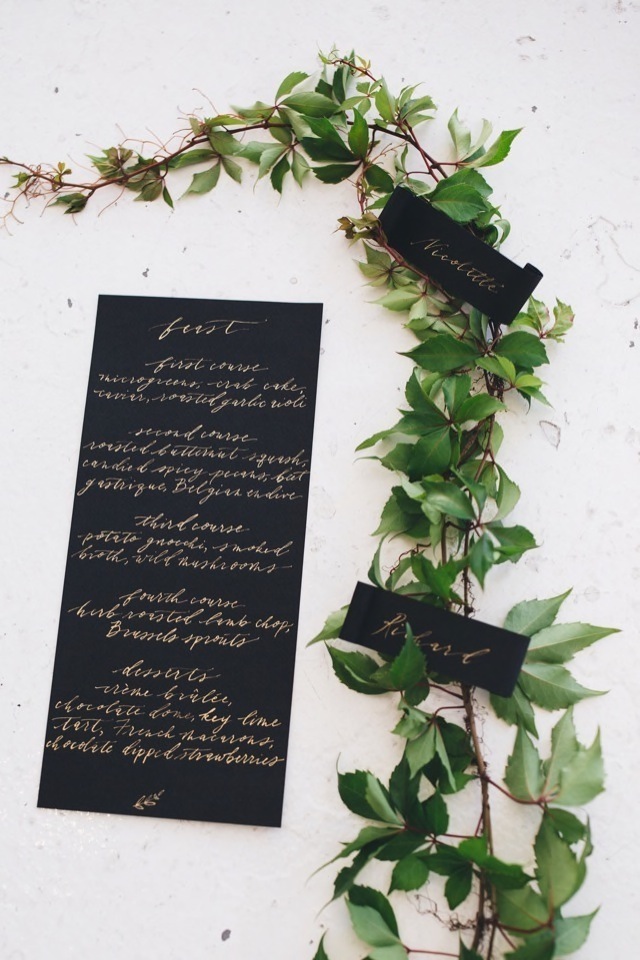 feast
first course
microgreens, crab cake,
caviar, roasted garlic aioli
second course
roasted butternut squash,
candied spicy pecans, beet
gastrique, Belgian endive
third course
potato gnocchi, smoked
broth, wild mushrooms
fourth course
herb roasted lamb chop,
Brussels sprouts
desserts
crème brûlée,
chocolate dome, key lime
tart, French macarons,
chocolate dipped strawberries
Richard